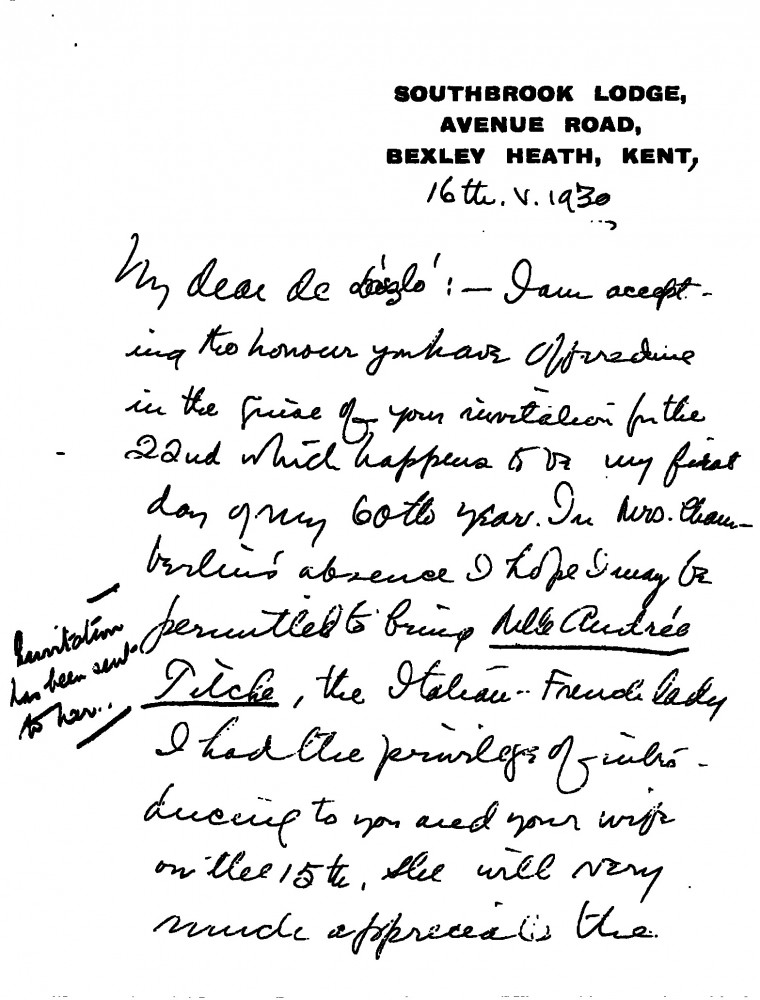 SOUTHBROOK LODGE,
AVENUE ROAD,
BEXLEY HEATH, KENT,
16th. V. 1930
My dear de László: — I am accept-
ing the honour you have offered me
in the guise of your invitation for the
22nd which happens to be my first
day of my 60th year. In Mrs. Cham-
berlin's absence I hope I may be
permitted to bring Mlle Andrée
Titche, the Italian-French lady
I had the privilege of intro-
ducing to you and your wife
on the 15th. She will very
much appreciate the
Invitation
has been sent
to her..